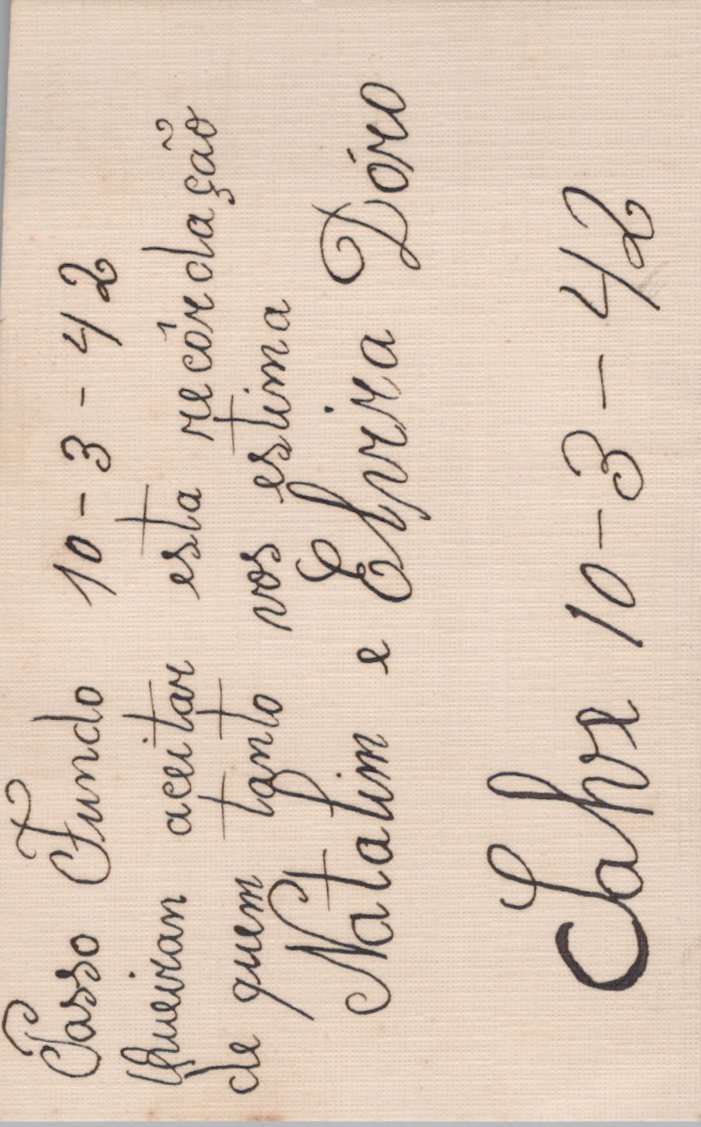 Passo Fundo 10-3-42
Queiran aceitar esta recôrdação
de quem tanto vos estima
Natalim e Elvira Dóro
Salve 10-3-42